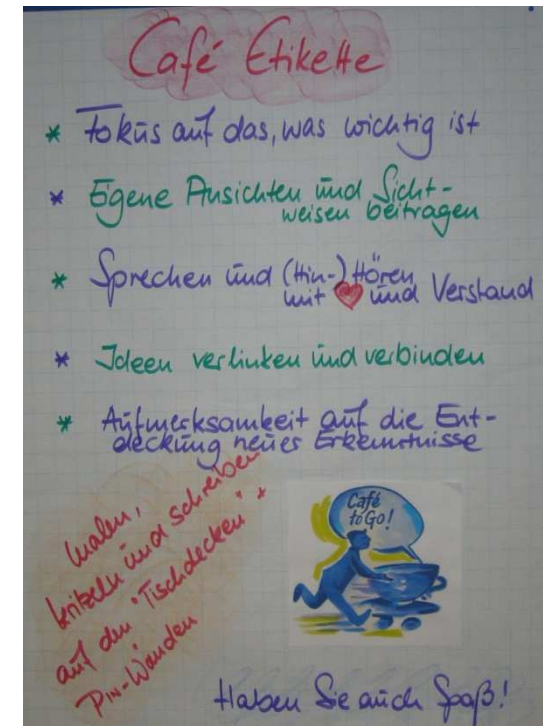 Café Etikette
* Fokus auf das, was wichtig ist
* Eigene Ansichten und Sicht-
weisen beitragen
* Sprechen und (Hin-) Hören
mit ❤ und Verstand
* Ideen verlinken und verbinden
* Aufmerksamkeit auf die Ent-
deckung neuer Erkenntnisse
malen,
kritzeln und schreiben
auf den "Tischdecken" *
Pin-Wänden
Café
to Go!
Haben Sie auch Spaß!